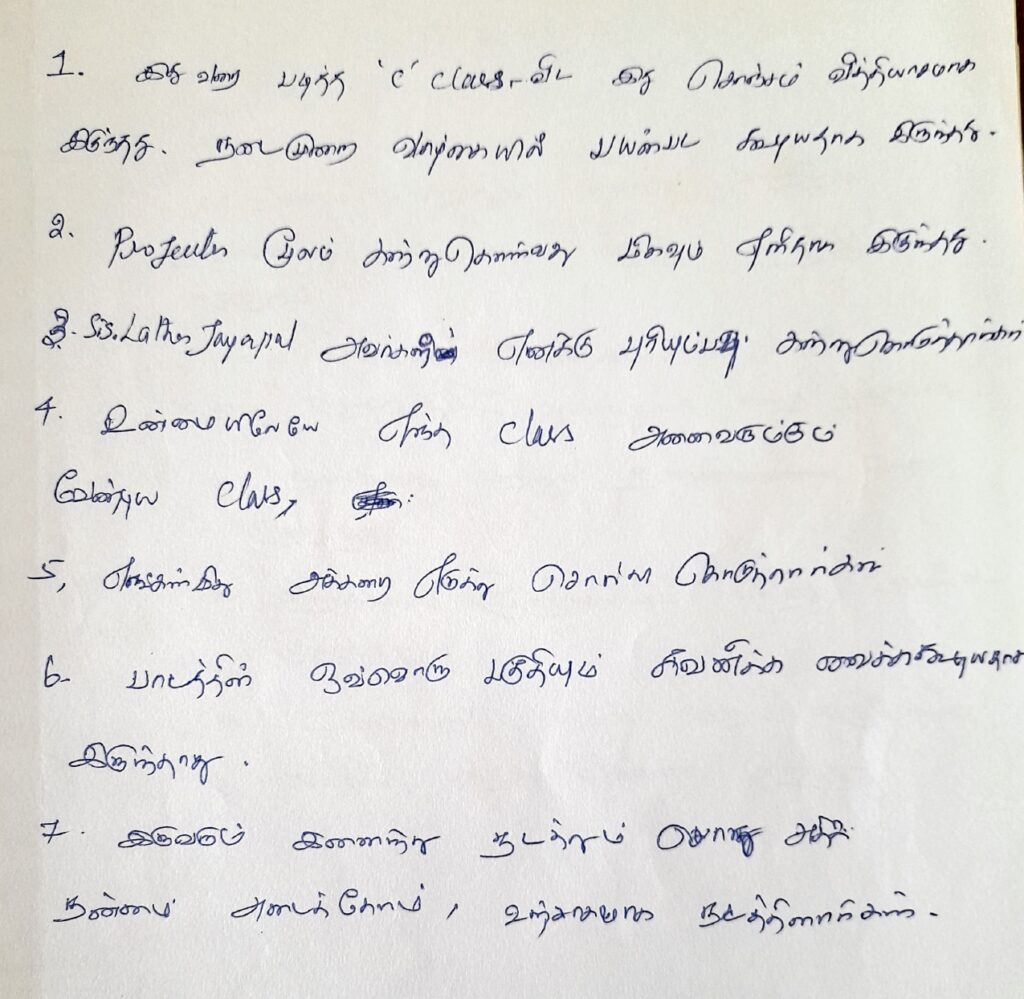 1. இது வரை படித்த 'C' Class-விட இது கொஞ்சம் வித்தியாசமாக
இருந்தது. நடைமுறை வாழ்கையில் பயன்பட கூடியதாக இருந்தது.
2. Projector மூலம் கற்றுகொள்வது மிகவும் எளிதாக இருந்தது.
3. Sis. Latha Jayapal அவர்களின் எனக்கு புரியும்படி கற்றுகொடுத்தார்கள்
4. உண்மையிலேயே இந்த Class அனைவருக்கும்
வேண்டிய Class,
5, எங்கள்மீது அக்கறை எடுத்து சொல்லி கொடுத்தார்கள்
6. பாடத்தின் ஒவ்வொரு பகுதியும் கவனிக்க வைக்ககூடியதாக
இருந்தாது.
7. இருவரும் இணைந்து நடத்தும் போது அதிக
நன்மை அடைந்தோம், உற்சாகமாக நடத்தினார்கள்.